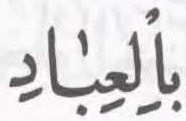 بِالْعِبٰادِ